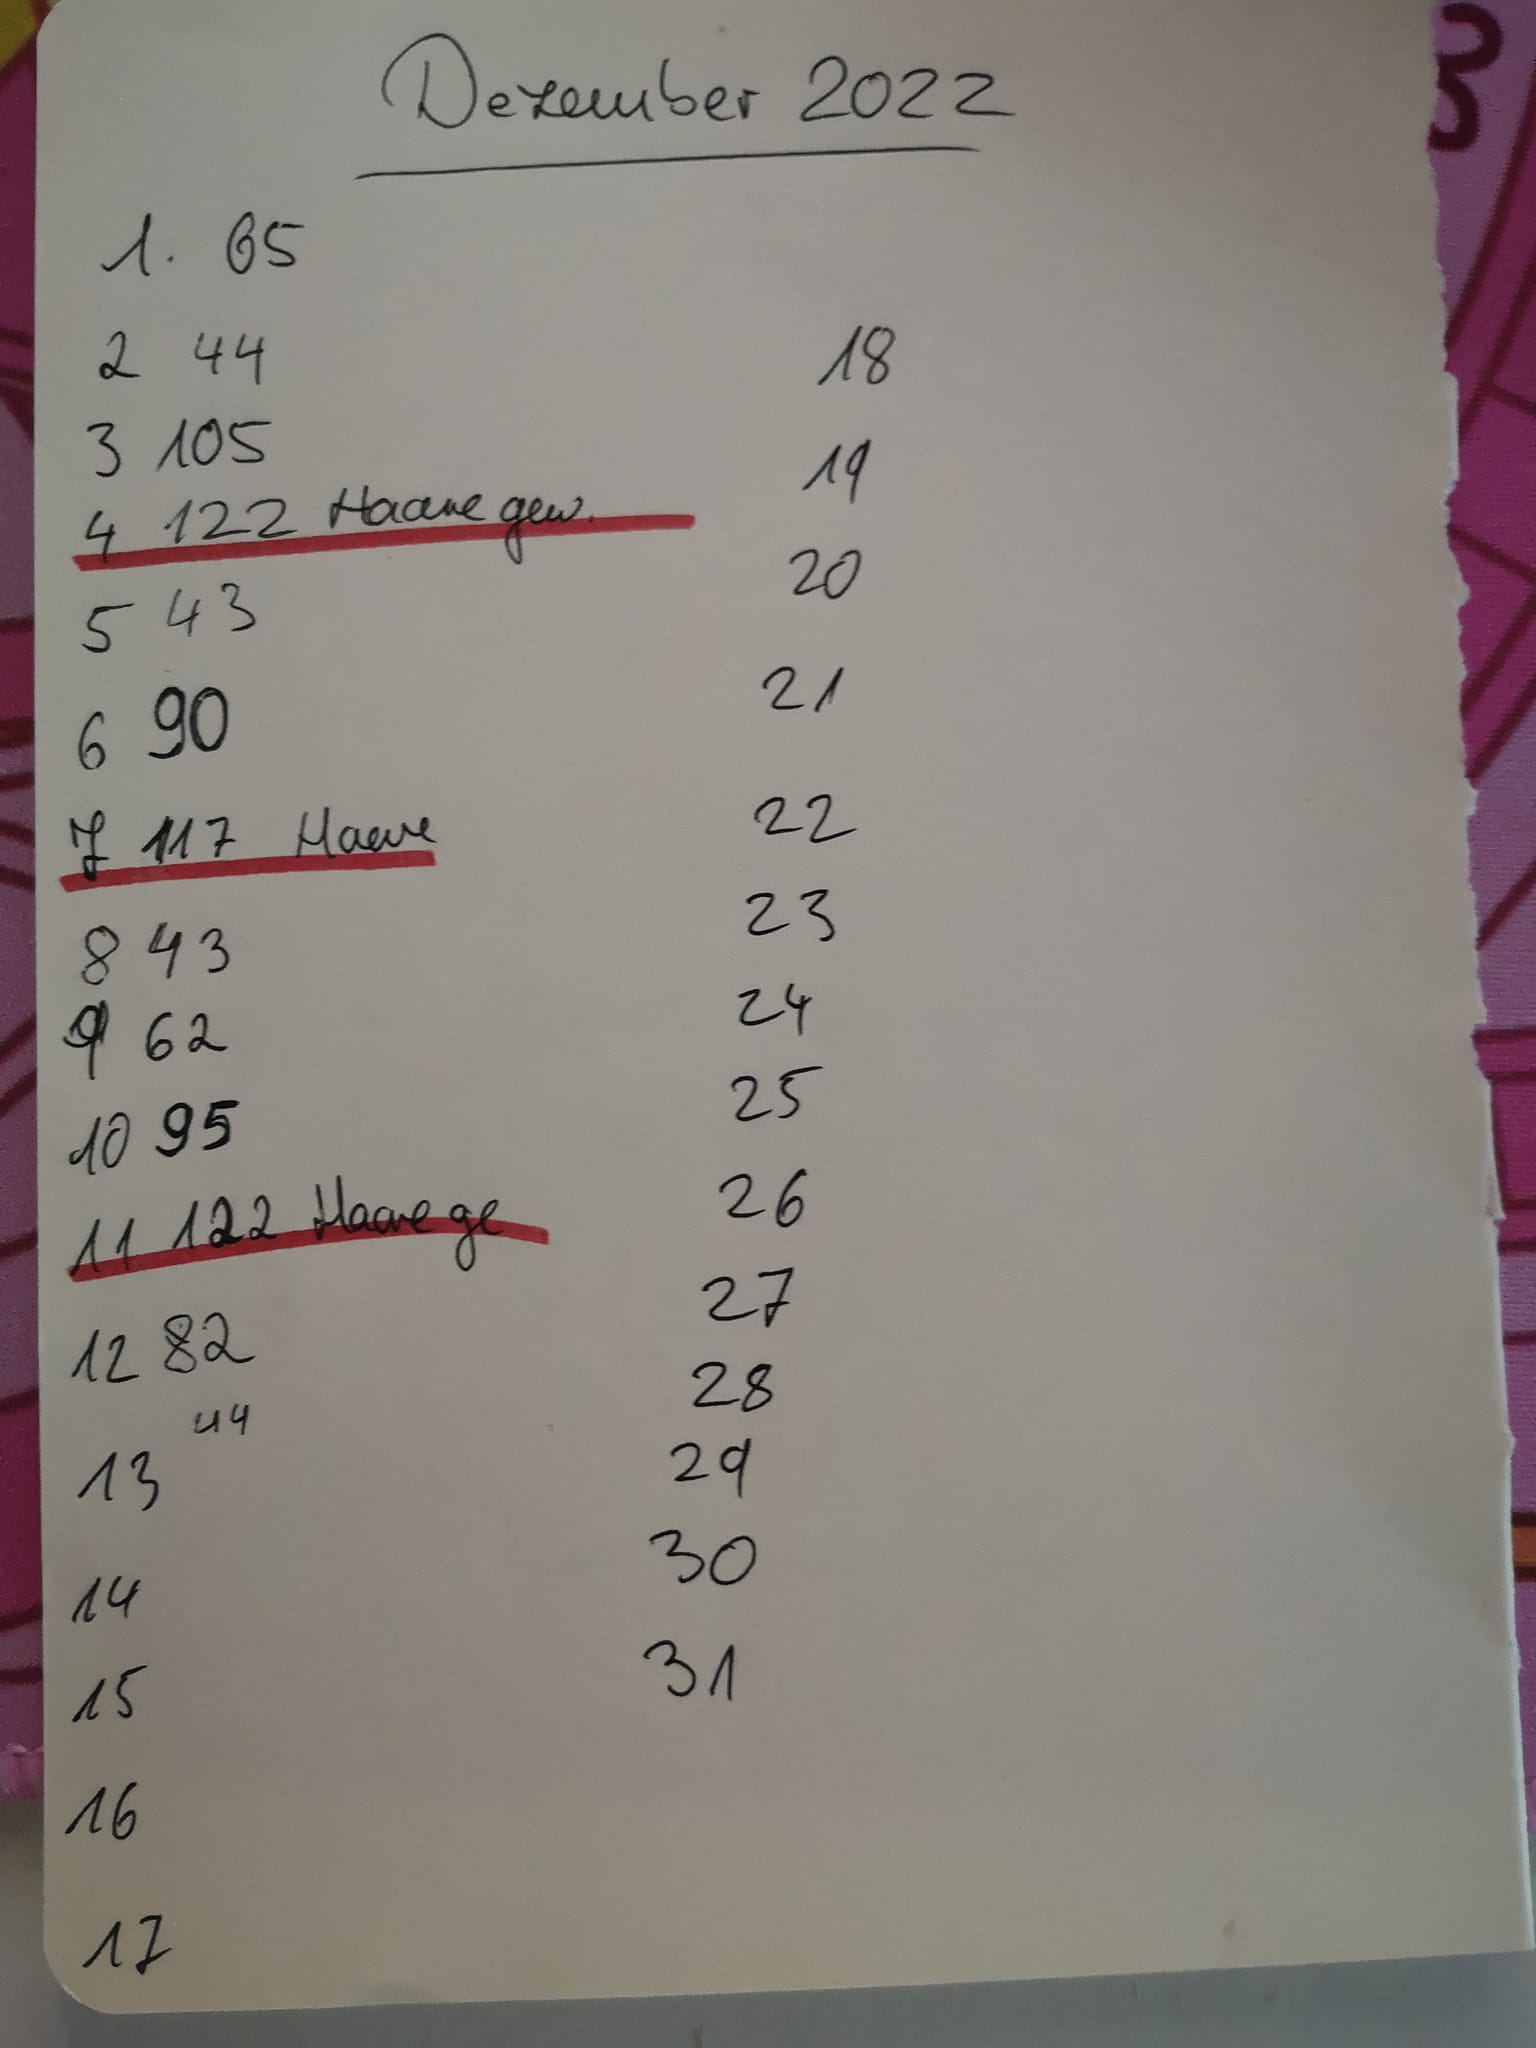 Dezember 2022
1. 65
2 44
3 105
4 122 Haare gew.
5 43
6 90
7 117 Haare
8 43
9 62
10 95
11 122 Haare ge
12 82
13 44
14
15
16
17
18
19
20
21
22
23
24
25
26
27
28
29
30
31
3